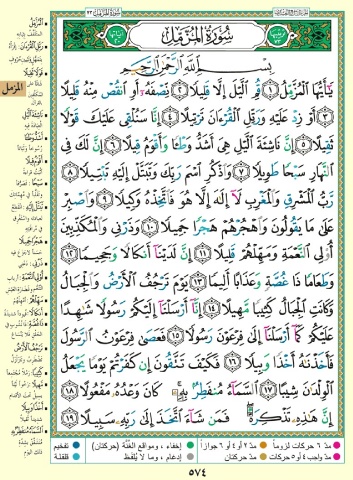 سُورَةُ المُزَّمِّلِ
بِسْمِ اللَّهِ الرَّحْمَٰنِ الرَّحِيمِ
يَٰٓأَيُّهَا ٱلْمُزَّمِّلُ ١ قُمِ ٱلَّيْلَ إِلَّا قَلِيلًا ٢ نِّصْفَهُۥٓ أَوِ ٱنقُصْ مِنْهُ قَلِيلًا
٣ أَوْ زِدْ عَلَيْهِ وَرَتِّلِ ٱلْقُرْءَانَ تَرْتِيلًا ٤ إِنَّا سَنُلْقِى عَلَيْكَ قَوْلًا
ثَقِيلًا ٥ إِنَّ نَاشِئَةَ ٱلَّيْلِ هِىَ أَشَدُّ وَطْـًٔا وَأَقْوَمُ قِيلًا ٦ إِنَّ لَكَ فِى
ٱلنَّهَارِ سَبْحًا طَوِيلًا ٧ وَٱذْكُرِ ٱسْمَ رَبِّكَ وَتَبَتَّلْ إِلَيْهِ تَبْتِيلًا ٨
رَّبُّ ٱلْمَشْرِقِ وَٱلْمَغْرِبِ لَآ إِلَٰهَ إِلَّا هُوَ فَٱتَّخِذْهُ وَكِيلًا ٩ وَٱصْبِرْ
عَلَىٰ مَا يَقُولُونَ وَٱهْجُرْهُمْ هَجْرًا جَمِيلًا ١٠ وَذَرْنِى وَٱلْمُكَذِّبِينَ
أُو۟لِى ٱلنَّعْمَةِ وَمَهِّلْهُمْ قَلِيلًا ١١ إِنَّ لَدَيْنَآ أَنكَالًا وَجَحِيمًا ١٢
وَطَعَامًا ذَا غُصَّةٍ وَعَذَابًا أَلِيمًا ١٣ يَوْمَ تَرْجُفُ ٱلْأَرْضُ وَٱلْجِبَالُ
وَكَانَتِ ٱلْجِبَالُ كَثِيبًا مَّهِيلًا ١٤ إِنَّآ أَرْسَلْنَآ إِلَيْكُمْ رَسُولًا شَٰهِدًا
عَلَيْكُمْ كَمَآ أَرْسَلْنَآ إِلَىٰ فِرْعَوْنَ رَسُولًا ١٥ فَعَصَىٰ فِرْعَوْنُ ٱلرَّسُولَ
فَأَخَذْنَٰهُ أَخْذًا وَبِيلًا ١٦ فَكَيْفَ تَتَّقُونَ إِن كَفَرْتُمْ يَوْمًا يَجْعَلُ
ٱلْوِلْدَٰنَ شِيبًا ١٧ ٱلسَّمَآءُ مُنفَطِرٌۢ بِهِۦ ۚ كَانَ وَعْدُهُۥ مَفْعُولًا ١٨
إِنَّ هَٰذِهِۦ تَذْكِرَةٌ ۖ فَمَن شَآءَ ٱتَّخَذَ إِلَىٰ رَبِّهِۦ سَبِيلًا ١٩
المزمل
مدّ ٦ حركات لزوماً
مدّ ٢ أو ٤ أو ٦ جوازاً
إخفاء، ومواقع الغُنَّة (حركتان)
تفخيم
مدّ واجب ٤ أو ٥ حركات
مدّ حركتان
إدغام، وما لا يُلفَظ
قلقلة
٥٧٤